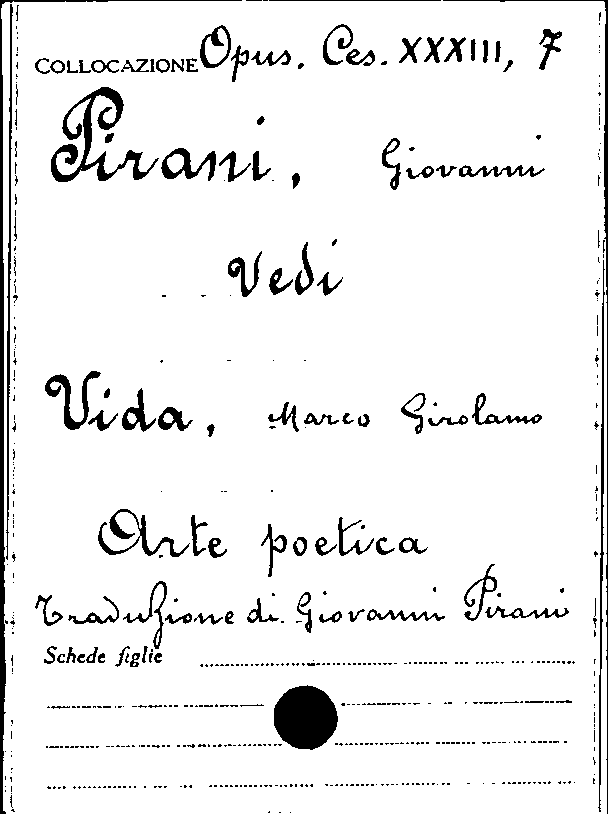 COLLOCAZIONE Opus. Ces. XXXIII, 7
Pirani, Giovanni
Vedi
Vida, Marco Girolamo
Arte poetica
Traduzione di Giovanni Pirani
Schede figlie